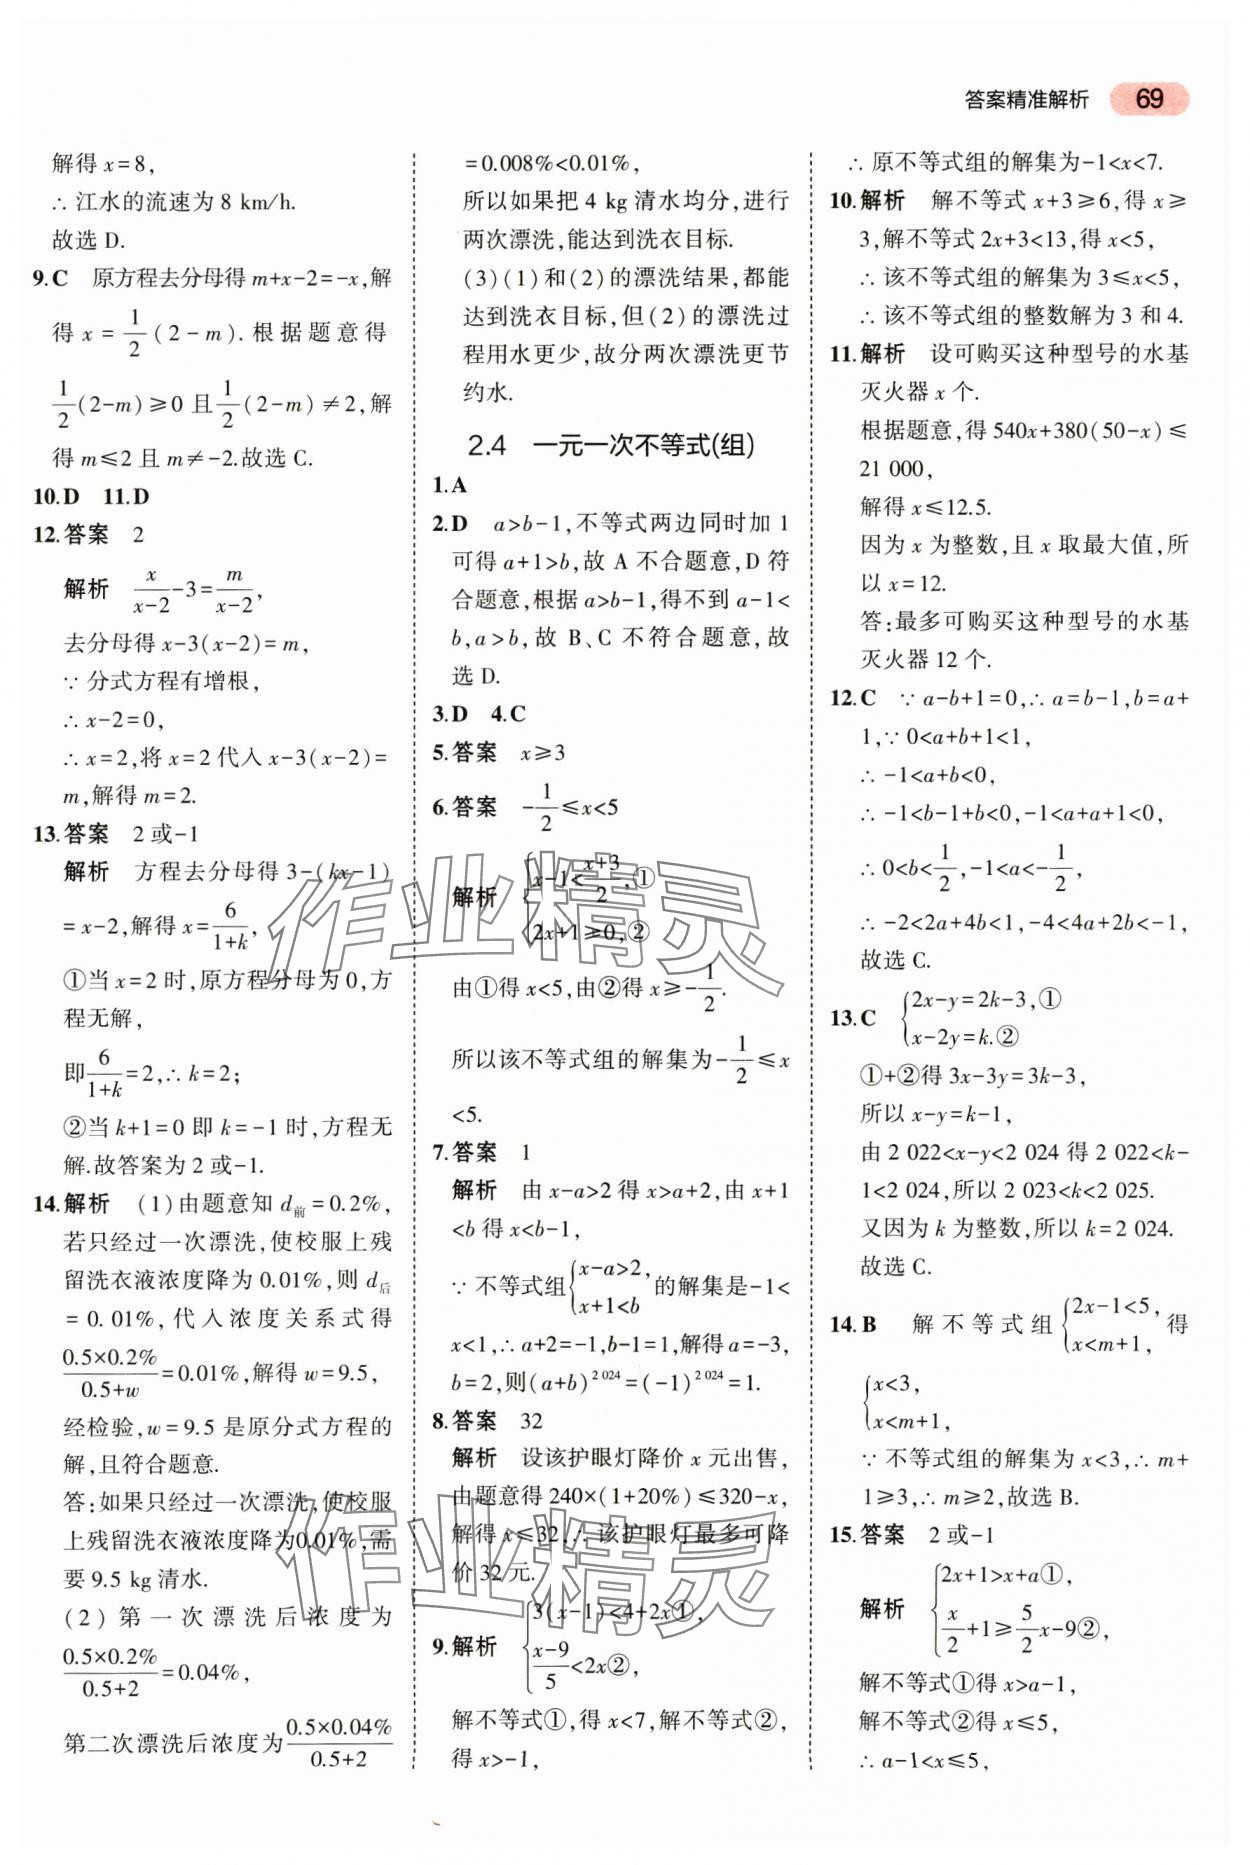 答案精准解析 69
解得 x=8,
∴ 江水的流速为 8 km/h.
故选 D.
9.C 原方程去分母得 m+x-2=-x,解
得 x = 1/2 (2-m). 根据题意得
1/2(2-m)≥0 且 1/2(2-m)≠2,解
得 m≤2 且 m≠-2.故选 C.
10.D 11.D
12.答案 2
解析 x/(x-2) -3= m/(x-2),
去分母得 x-3(x-2)=m,
∵ 分式方程有增根,
∴ x-2=0,
∴ x=2,将 x=2 代入 x-3(x-2)=
m,解得 m=2.
13.答案 2 或-1
解析 方程去分母得 3-(kx-1)
=x-2,解得 x= 6/(1+k),
①当 x=2 时,原方程分母为 0,方
程无解,
即 6/(1+k) =2,∴ k=2;
②当 k+1=0 即 k=-1 时,方程无
解.故答案为 2 或-1.
14.解析 (1)由题意知 d前=0.2%,
若只经过一次漂洗,使校服上残
留洗衣液浓度降为 0.01%,则 d后
=0.01%,代入浓度关系式得
(0.5×0.2%)/(0.5+w) =0.01%,解得 w=9.5,
经检验,w=9.5 是原分式方程的
解,且符合题意.
答:如果只经过一次漂洗,使校服
上残留洗衣液浓度降为0.01%,需
要 9.5 kg 清水.
(2)第一次漂洗后浓度为
(0.5×0.2%)/(0.5+2) =0.04%,
第二次漂洗后浓度为 (0.5×0.04%)/(0.5+2)
=0.008%<0.01%,
所以如果把 4 kg 清水均分,进行
两次漂洗,能达到洗衣目标.
(3)(1)和(2)的漂洗结果,都能
达到洗衣目标,但(2)的漂洗过
程用水更少,故分两次漂洗更节
约水.
2.4 一元一次不等式(组)
1.A
2.D a>b-1,不等式两边同时加 1
可得 a+1>b,故 A 不合题意,D 符
合题意,根据 a>b-1,得不到 a-1<
b,a>b,故 B、C 不符合题意,故
选 D.
3.D 4.C
5.答案 x≥3
6.答案 -1/2≤x<5
解析 { x-1<(x+3)/2,①
2x+1≥0,②
由①得 x<5,由②得 x≥-1/2.
所以该不等式组的解集为-1/2≤x
<5.
7.答案 1
解析 由 x-a>2 得 x>a+2,由 x+1
<b 得 x<b-1,
∵ 不等式组 { x-a>2, x+1<b 的解集是-1<
x<1,∴ a+2=-1,b-1=1,解得 a=-3,
b=2,则(a+b)^2 024=(-1)^2 024=1.
8.答案 32
解析 设该护眼灯降价 x 元出售,
由题意得 240×(1+20%)≤320-x,
解得 x≤32,∴ 该护眼灯最多可降
价 32 元.
9.解析 { 3(x-1)<4+2x①,
(x-9)/5<2x②,
解不等式①,得 x<7,解不等式②,
得 x>-1,
∴ 原不等式组的解集为-1<x<7.
10.解析 解不等式 x+3≥6,得 x≥
3,解不等式 2x+3<13,得 x<5,
∴ 该不等式组的解集为 3≤x<5,
∴ 该不等式组的整数解为 3 和 4.
11.解析 设可购买这种型号的水基
灭火器 x 个.
根据题意,得 540x+380(50-x)≤
21 000,
解得 x≤12.5.
因为 x 为整数,且 x 取最大值,所
以 x=12.
答:最多可购买这种型号的水基
灭火器 12 个.
12.C ∵ a-b+1=0,∴ a=b-1,b=a+
1,∵ 0<a+b+1<1,
∴ -1<a+b<0,
∴ -1<b-1+b<0,-1<a+a+1<0,
∴ 0<b<1/2,-1<a<-1/2,
∴ -2<2a+4b<1,-4<4a+2b<-1,
故选 C.
13.C { 2x-y=2k-3,①
x-2y=k.②
①+②得 3x-3y=3k-3,
所以 x-y=k-1,
由 2 022<x-y<2 024 得 2 022<k-
1<2 024,所以 2 023<k<2 025.
又因为 k 为整数,所以 k=2 024.
故选 C.
14.B 解不等式组 { 2x-1<5, x<m+1, 得
{ x<3,
x<m+1,
∵ 不等式组的解集为 x<3,∴ m+
1≥3,∴ m≥2,故选 B.
15.答案 2 或-1
解析 { 2x+1>x+a①,
x/2+1≥5/2 x-9②,
解不等式①得 x>a-1,
解不等式②得 x≤5,
∴ a-1<x≤5,
作业精灵
作业精灵